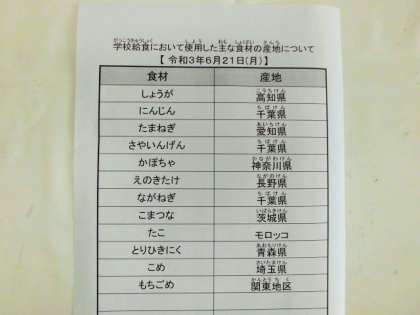 学校給食において使用した主な食材の産地について
【 令和3年6月21日(月)】
食材 産地
しょうが 高知県
にんじん 千葉県
たまねぎ 愛知県
さやいんげん 千葉県
かぼちゃ 神奈川県
えのきたけ 長野県
ながねぎ 千葉県
こまつな 茨城県
たこ モロッコ
とりひきにく 青森県
こめ 埼玉県
もちごめ 関東地区